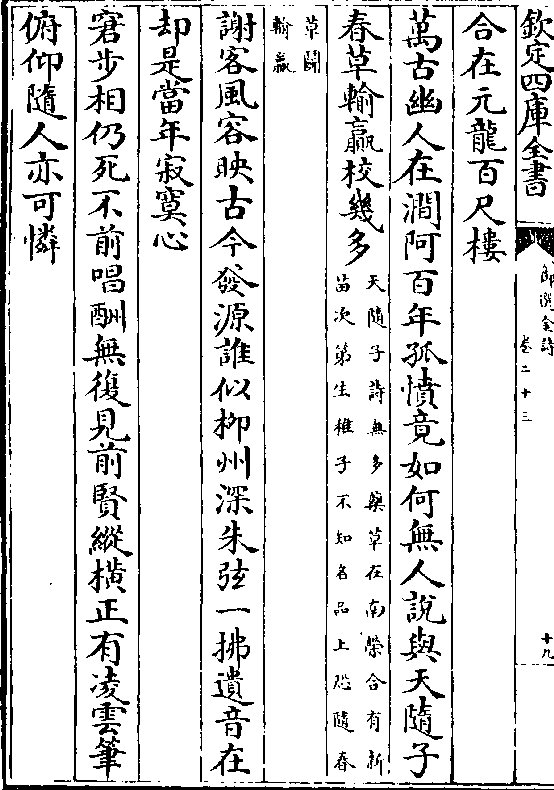 欽定四庫全書
御選金詩
卷二十三
十九
合在元龍百尺樓
萬古幽人在澗阿百年孤憤竟如何無人說與天隨子
春草輸贏校幾多
天隨子詩無多藥草在南榮合有新
苗次第生稚子不知名品上恐隨春
草鬭
輸贏
謝客風容映古今發源誰似柳州深朱弦一拂遺音在
却是當年寂寞心
窘步相仍死不前唱酬無復見前賢縱橫正有凌雲筆
俯仰隨人亦可憐